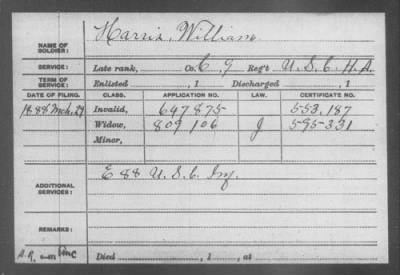 NAME OF SOLDIER: Harris, William
SERVICE: Late rank, Co. C, 9 Reg't U. S. C. H. A.
TERM OF SERVICE: Enlisted , 1 Discharged , 1
DATE OF FILING. CLASS. APPLICATION NO. LAW. CERTIFICATE NO.
1888 Mch. 29 Invalid, 647875 553.187
Widow, 809106 J 595-331
Minor,
ADDITIONAL SERVICES: E 88 U. S. C. Inf.
REMARKS:
Died , 1 , at